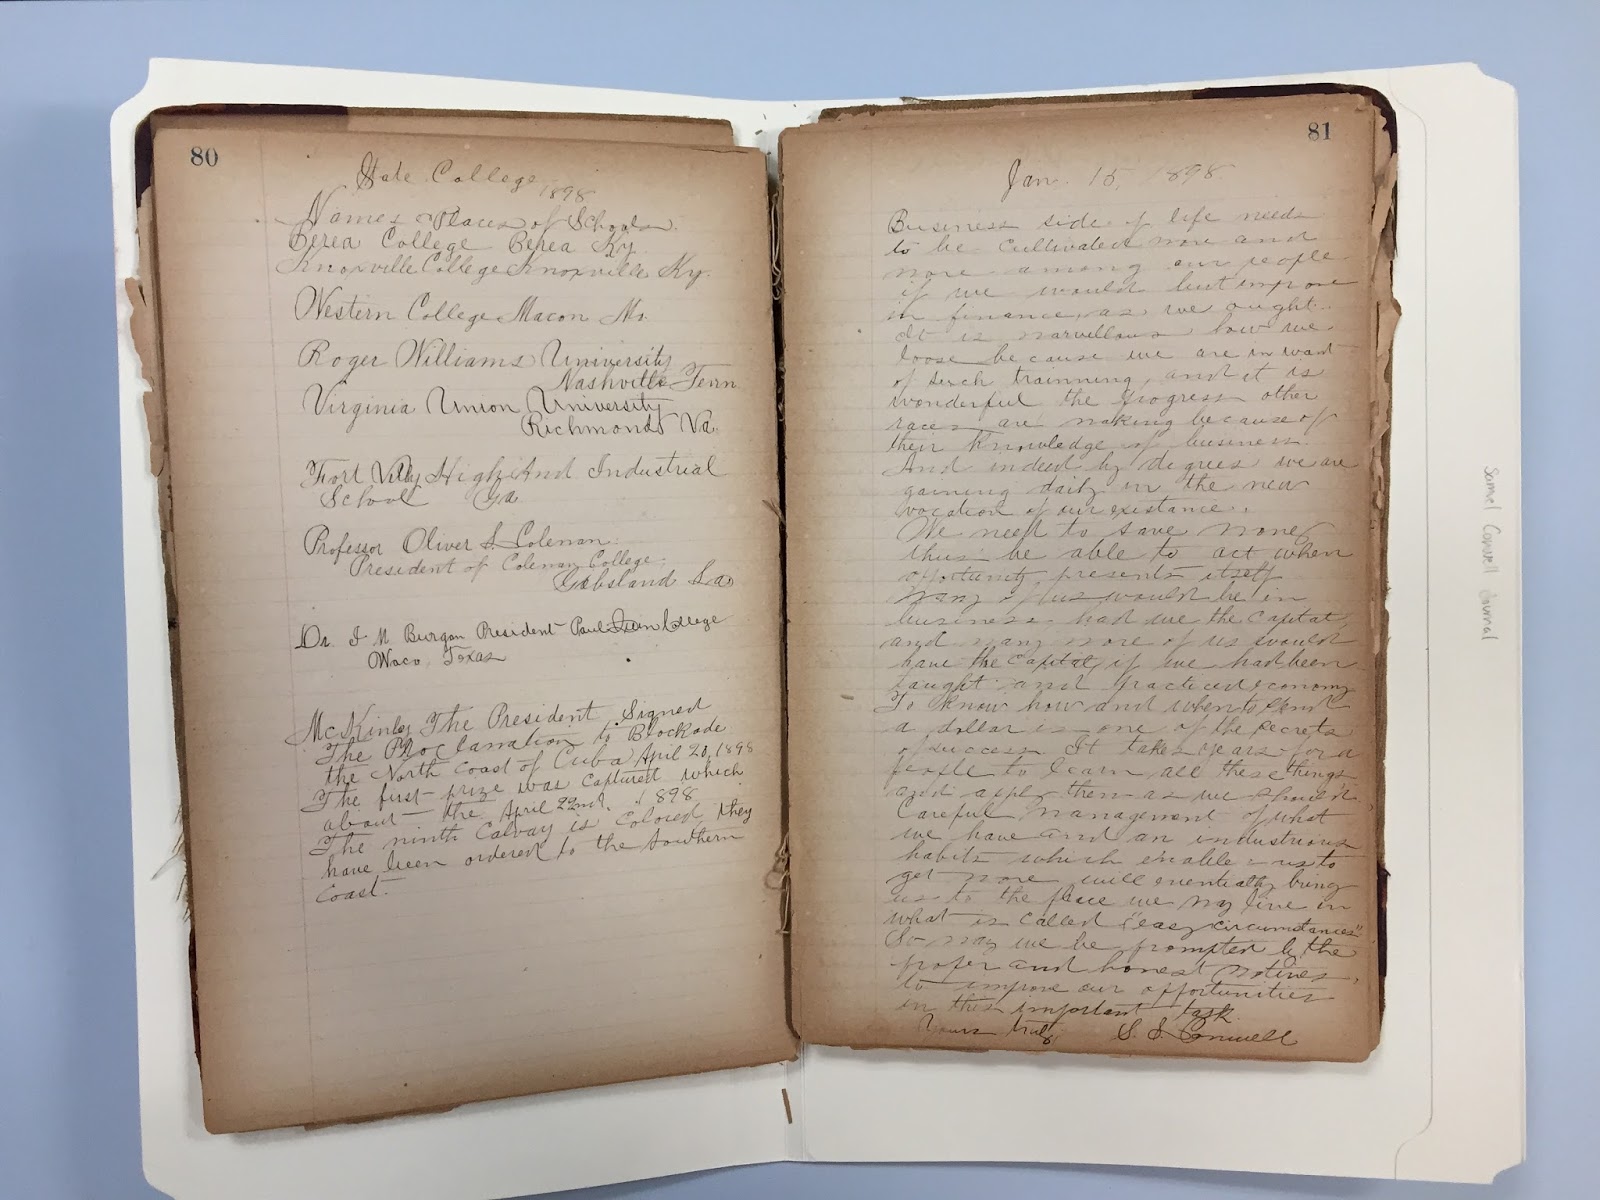 80
State College
1898
Names & Places of Schools.
Berea College Berea Ky.
Knoxville College Knoxville Ky.
Western College Macon Mo.
Roger Williams University
Nashville Tenn
Virginia Union University
Richmond Va.
Fort Vally High And Industrial
School Ga
Professor Oliver L Coleman.
President of Coleman College,
Gibsland La,
Dr. I M Burgan President Paul Quinn College
Waco, Texas
McKinley The President Signed
The Proclamation to Blockade
the North Coast of Cuba April 20, 1898
The first prize was captured which
about the April 22nd. 1898
The ninth Calvay is Colored they
have been ordered to the Southern
Coast.
81
Jan. 15, 1898.
Business side of life needs
to be cultivated more and
more among our people
if we would but improve
in finance as we ought.
It is marvellous how we
loose because we are in want
of such trainning, and it is
wonderful the progress other
races are making because of
their knowledge of business.
And indeed by degrees we are
gaining daily in the new
vocation of our existance.
We need to save money
thus be able to act when
opportunity presents itself
Many of us would be in
business had we the capital,
and many more of us would
have the capital if we had been
taught and practiced economy
To know how and when to spend
a dollar is one of the secrets
of success. It takes years for a
people to learn all these things
and apply them as we should.
Careful management of what
we have and an industrious
habits which enables us to
get more will eventually bring
us to the place we may live in
what is called "easy circumstances"
So may we be prompted by the
proper and honest motives,
to improve our opportunities
in this important task.
Yours truly, S. S. Conwell
Samuel Conwell Journal